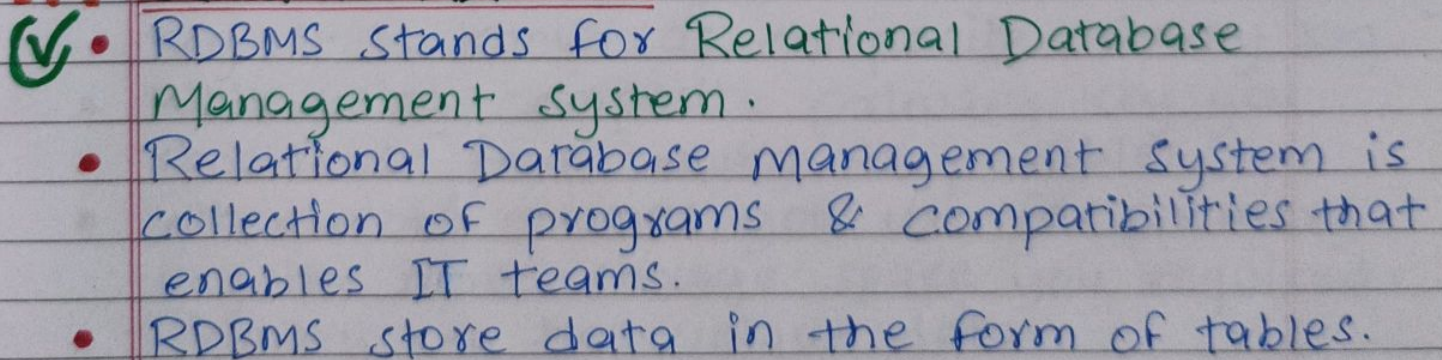 • RDBMS stands for Relational Database
Management system.
• Relational Database management system is
collection of programs & compatibilities that
enables IT teams.
• RDBMS store data in the form of tables.